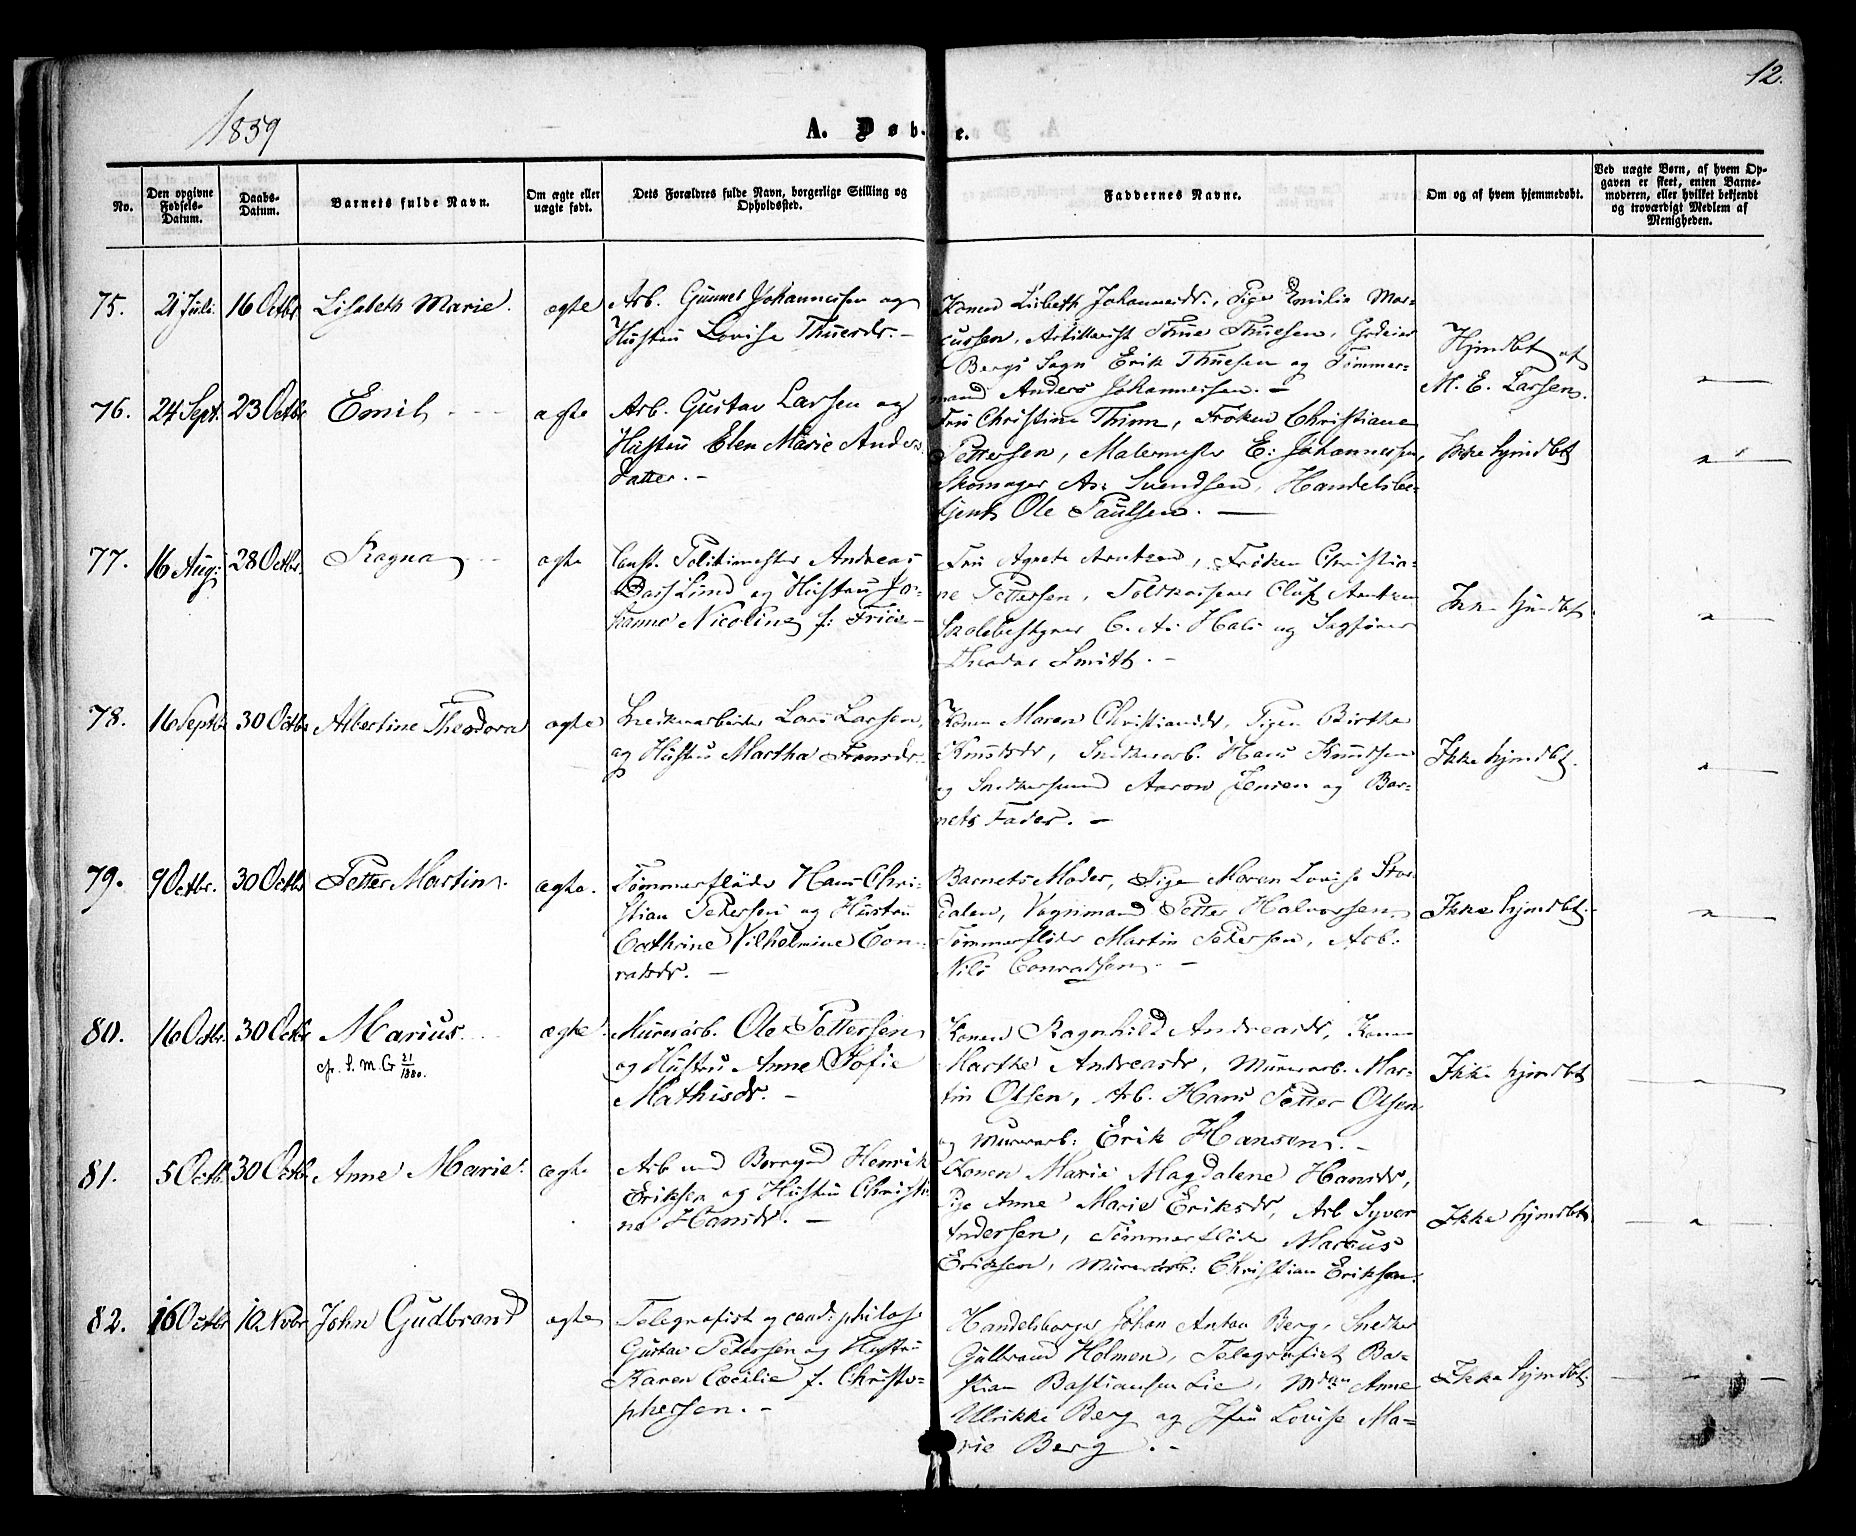 12.
1859
A. Døbte.
No.
Den opgivne Fødsels-Datum.
Daabs-Datum.
Barnets fulde Navn.
Om ægte eller uægte født.
Dets Forældres fulde Navn, borgerlige Stilling og Opholdssted.
Faddernes Navne.
Om og af hvem hjemmedøbt.
Ved uægte Børn, af hvem Opgaven er skeet, enten Barnemoderen, eller hvilket bekjendt og troværdigt Medlem af Menigheden.
75. 21 Juli 16 Octbr Lisabeth Marie. ægte
Arb. Gunner Johannessen og
Hustru Lovise Thuesdr. -
Konen Lisbeth Johannesdr., Pige Emilie Mar-
cussen, Artillerist Thue Thuesen,
Bergs Sogn Erik Thuesen og Tømmer-
mand Anders Johannessen. -
Hjmdbt af
M. E. Larsen.
76. 24 Sept. 23 Octbr Emil ægte
Arb. Gustav Larsen og
Hustru Elen Marie Anders
Datter. -
Fru Christine Thinn, Frøken Christiane
Pettersen, Malermester E: Johannessen,
Skomager As: Svendsen, Handelsbe-
tjent Ole Paulsen. -
Ikke hjmdbt
77. 16 Aug: 28 Octbr. Ragna ægte
Const. Politimester Andreas
Dass Lund og Hustru Jo-
hanne Nicoline f: Friis -
Fru Agnete Arntzen, Frøken Christia-
ne Pettersen, Toldkasserer Oluf Arntzen
Skolebestyrer C. A: Holo og Sagfører
Theodor Smith. -
Ikke hjmdbt.
78. 16 Septbr 30 Octbr Albertine Theodora ægte
Snedkerarbeider Lars Larsen,
og Hustru Martha Fransdr.
Konen Maren Christiansdr, Pigen Birthe
Knudsdr, Snedkerarb. Hans Knudsen
og Snedkersvend Aaron Jensen og Bar-
nets Fader. -
Ikke hjmdbt.
79. 9 Octbr. 30 Octbr Petter Martin. ægte.
Tømmerfløder Hans Chri-
stian Pedersen og Hustru
Cathrine Vilhelmine Con-
radsdr. -
Barnets Moder, Pige Maren Lovise Stor-
dalen, Vognmand Petter Halvorsen,
Tømmerfløder Martin Pedersen, Arb.
Nils Conradsen. -
Ikke hjmdbt.
80. 16 Octbr. 30 Octbr Marius. ægte.
cfr. S. m. G 21/1880.
Murerarb. Ole Pettersen
og Hustru Anne Sofie
Mathisdr. -
Konen Ragnhild Andreasdr, Konen
Marthe Andreasdr, Murerarb. Mar-
tin Olsen, Arb. Hans Petter Olsen
og Murerarb: Erik Hansen. -
Ikke hjmdbt
81. 5 Octb 30 Octbr Anne Marie. ægte
Arb ved Borregrd Henrik
Eriksen og Hustru Christi-
ne Hansdr. -
Konen Marie Magdalene Hansdr,
Pige Anne Marie Eriksdr, Arb Syver
Andersen, Tømmerfløder Marcus
Eriksen, Murerarb: Christian Eriksen.
Ikke hjmdbt
82. 16 Octbr 10 Novbr John Gudbrand ægte
Telegrafist og cand: philos
Gustav Petersen og Hustru
Karen Cecilie f. Christo-
phersen. -
Handelsborger Johan Anton Berg, Snedker
Gulbrand Holmen, Telegrafist Ba-
stian Bastiansen Lie, Mdm Anne
Ulrikke Berg og Jfru Lovise Ma-
rie Berg. -
Ikke hjmdbt.